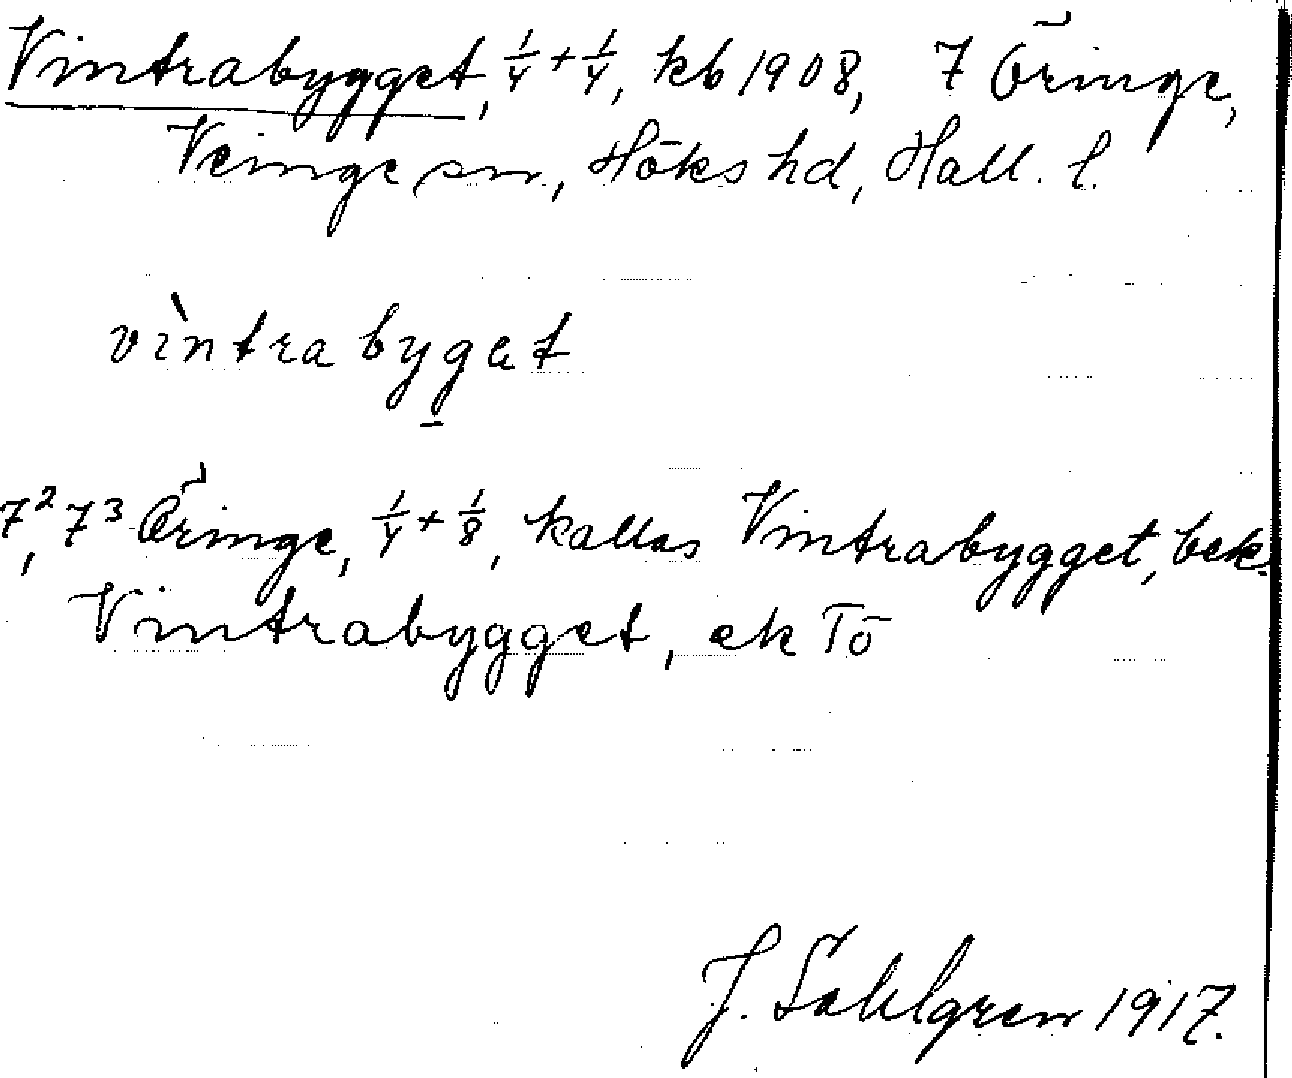 Vintrabygget, 1/4 + 1/4, kb 1908, 7 Öringe,
Veinge sn, Höks hd, Hall. l.
vìntrabyget
7², 7³ Öringe, 1/4 + 1/8, kallas Vintrabygget, bek.
Vintrabygget, ek Tö
J. Sahlgren 1917.